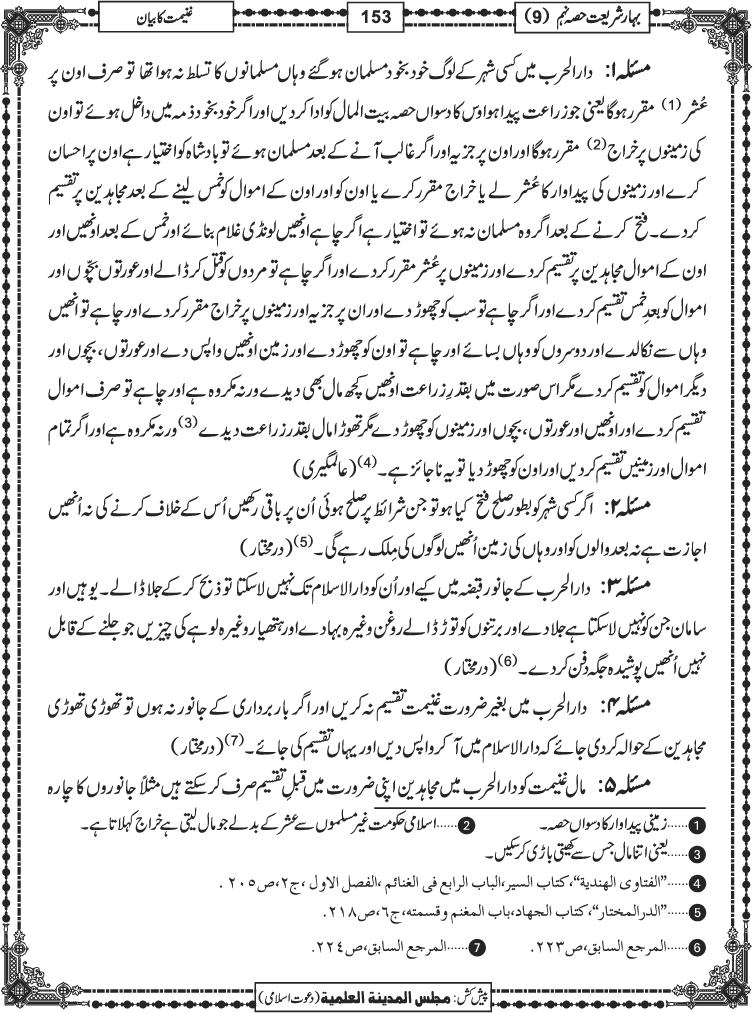 بہارِ شریعت حصہ نہم (9)
153
غنیمت کا بیان
مسئلہ ۱: دارالحرب میں کسی شہر کے لوگ خود بخود مسلمان ہو گئے وہاں مسلمانوں کا تسلط نہ ہوا تھا تو صرف اون پر
عُشر (1) مقرر ہو گا یعنی جو زراعت پیدا ہو اوس کا دسواں حصہ بیت المال کو ادا کر دیں اور اگر خود بخود ذمہ میں داخل ہوئے تو اون
کی زمینوں پر خراج (2) مقرر ہو گا اور اون پر جزیہ اور اگر غالب آنے کے بعد مسلمان ہوئے تو بادشاہ کو اختیار ہے اون پر احسان
کرے اور زمینوں کی پیداوار کا عُشر لے یا خراج مقرر کرے یا اون کو اور اون کے اموال کو خُمس لینے کے بعد مجاہدین پر تقسیم
کر دے۔ فتح کرنے کے بعد اگر وہ مسلمان نہ ہوئے تو اختیار ہے اگر چاہے اونھیں لونڈی غلام بنائے اور خمس کے بعد اونھیں اور
اون کے اموال مجاہدین پر تقسیم کر دے اور زمینوں پر عُشر مقرر کر دے اور اگر چاہے تو مردوں کو قتل کر ڈالے اور عورتوں بچّوں اور
اموال کو بعدِ خمس تقسیم کر دے اور اگر چاہے تو سب کو چھوڑ دے اور ان پر جزیہ اور زمینوں پر خراج مقرر کر دے اور چاہے تو انھیں
وہاں سے نکالدے اور دوسروں کو وہاں بسائے اور چاہے تو اون کو چھوڑ دے اور زمین اونھیں واپس دے اور عورتوں، بچوں اور
دیگر اموال کو تقسیم کر دے مگر اس صورت میں بقدرِ زراعت اونھیں کچھ مال بھی دیدے ورنہ مکروہ ہے اور چاہے تو صرف اموال
تقسیم کر دے اور اونھیں اور عورتوں، بچوں اور زمینوں کو چھوڑ دے مگر تھوڑا مال بقدر زراعت دیدے (3) ورنہ مکروہ ہے اور اگر تمام
اموال اور زمینیں تقسیم کر دیں اور اون کو چھوڑ دیا تو یہ ناجائز ہے۔ (4) (عالمگیری)
مسئلہ ۲: اگر کسی شہر کو بطور صلح فتح کیا ہو تو جن شرائط پر صلح ہوئی اُن پر باقی رکھیں اُس کے خلاف کرنے کی نہ اُنھیں
اجازت ہے نہ بعد والوں کو اور وہاں کی زمین اُنھیں لوگوں کی مِلک رہے گی۔ (5) (درمختار)
مسئلہ ۳: دارالحرب کے جانور قبضہ میں کیے اور اُن کو دارالاسلام تک نہیں لا سکتا تو ذبح کر کے جلا ڈالے۔ یوہیں اور
سامان جن کو نہیں لا سکتا ہے جلا دے اور برتنوں کو توڑ ڈالے روغن وغیرہ بہا دے اور ہتھیار وغیرہ لوہے کی چیزیں جو جلنے کے قابل
نہیں اُنھیں پوشیدہ جگہ دفن کر دے۔ (6) (درمختار)
مسئلہ ۴: دارالحرب میں بغیر ضرورت غنیمت تقسیم نہ کریں اور اگر بار برداری کے جانور نہ ہوں تو تھوڑی تھوڑی
مجاہدین کے حوالہ کر دی جائے کہ دارالاسلام میں آ کر واپس دیں اور یہاں تقسیم کی جائے۔ (7) (درمختار)
مسئلہ ۵: مال غنیمت کو دارالحرب میں مجاہدین اپنی ضرورت میں قبلِ تقسیم صرف کر سکتے ہیں مثلاً جانوروں کا چارہ
1 ......زمینی پیداوار کا دسواں حصہ۔ 2 ......اسلامی حکومت غیر مسلموں سے عشر کے بدلے جو مال لیتی ہے خراج کہلاتا ہے۔
3 ......یعنی اتنا مال جس سے کھیتی باڑی کر سکیں۔
4 ......"الفتاوی الھندیة"،کتاب السیر،الباب الرابع فی الغنائم ،الفصل الاول ،ج۲،ص۲۰۵ .
5 ......"الدرالمختار"،کتاب الجهاد،باب المغنم وقسمته،ج٦،ص۲۱۸.
6 ......المرجع السابق،ص۲۲۳. 7 ......المرجع السابق،ص۲۲٤.
پیش کش: مجلس المدینة العلمیة (دعوت اسلامی)